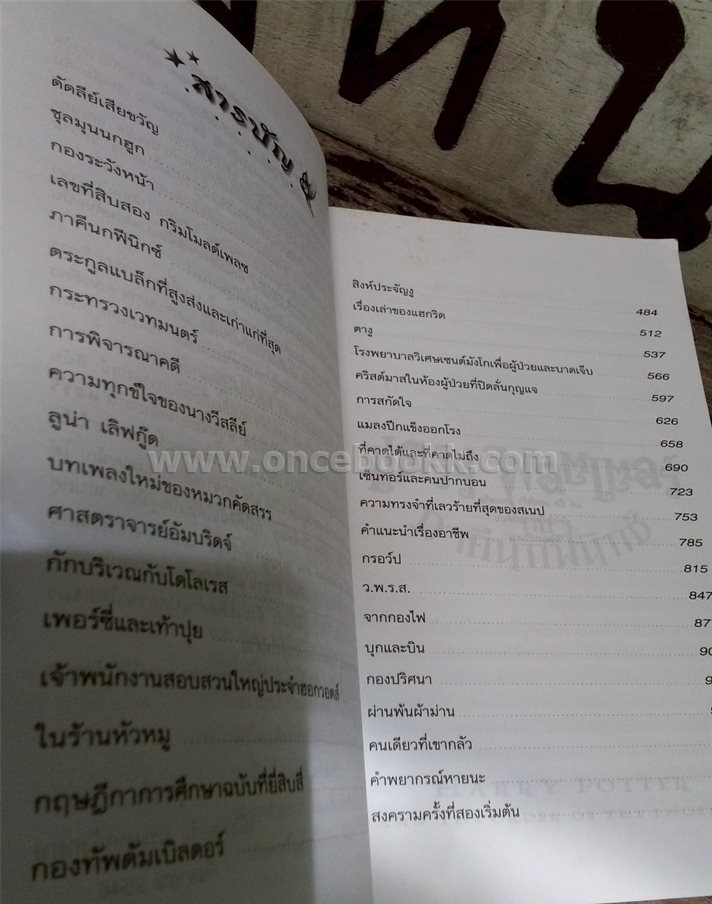 สารบัญ
ดัดลีย์เสียขวัญ
ชุลมุนนกฮูก
กองระวังหน้า
เลขที่สิบสอง กริมโมลด์เพลซ
ภาคีนกฟีนิกซ์
ตระกูลแบล็กที่สูงส่งและเก่าแก่ที่สุด
กระทรวงเวทมนตร์
การพิจารณาคดี
ความทุกข์ใจของนางวีสลีย์
ลูน่า เลิฟกู๊ด
บทเพลงใหม่ของหมวกคัดสรร
ศาสตราจารย์อัมบริดจ์
กักบริเวณกับโดโลเรส
เพอร์ซี่และเท้าปุย
เจ้าพนักงานสอบสวนใหญ่ประจำฮอกวอตส์
ในร้านหัวหมู
กฤษฎีกาการศึกษาฉบับที่ยี่สิบสี่
กองทัพดัมเบิลดอร์
สิงห์ประจัญงู 484
เรื่องเล่าของแฮกริด 512
ตางู 537
โรงพยาบาลวิเศษเซนต์มังโกเพื่อผู้ป่วยและบาดเจ็บ 566
คริสต์มาสในห้องผู้ป่วยที่ปิดลั่นกุญแจ 597
การสกัดใจ 626
แมลงปีกแข็งออกโรง 658
ที่คาดได้และที่คาดไม่ถึง 690
เซ็นทอร์และคนปากบอน 723
ความทรงจำที่เลวร้ายที่สุดของสเนป 753
คำแนะนำเรื่องอาชีพ 785
กรอว์ป 815
ว.พ.ร.ส. 847
จากกองไฟ 87
บุกและบิน 90
กองปริศนา 9
ผ่านพ้นผ้าม่าน
คนเดียวที่เขากลัว
คำพยากรณ์หายนะ
สงครามครั้งที่สองเริ่มต้น
www.oncebookk.com
HARRY POTTER